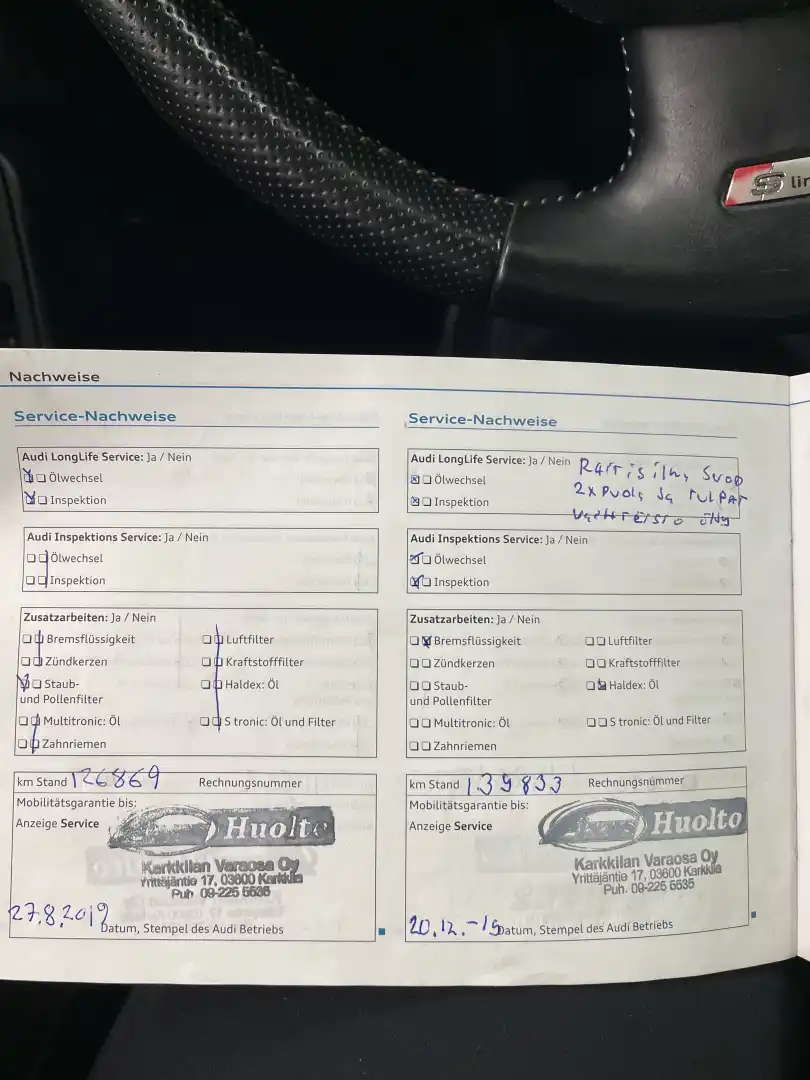 S lin
Nachweise
Service-Nachweise
Audi LongLife Service: Ja / Nein
Ölwechsel
Inspektion
Audi Inspektions Service: Ja / Nein
Ölwechsel
Inspektion
Zusatzarbeiten: Ja / Nein
Bremsflüssigkeit
Luftfilter
Zündkerzen
Kraftstofffilter
Staub-
und Pollenfilter
Haldex: Öl
Multitronic: Öl
S tronic: Öl und Filter
Zahnriemen
km Stand 126869 Rechnungsnummer
Mobilitätsgarantie bis:
Anzeige Service
Huolto
Karkkilan Varaosa Oy
Yrittäjäntie 17, 03600 Karkkila
Puh. 09-225 5535
27.8.2019
Datum, Stempel des Audi Betriebs
Service-Nachweise
Audi LongLife Service: Ja / Nein
Ölwechsel
Inspektion
2x puola ja tulpat
Audi Inspektions Service: Ja / Nein
Ölwechsel
Inspektion
Zusatzarbeiten: Ja / Nein
Bremsflüssigkeit
Luftfilter
Zündkerzen
Kraftstofffilter
Staub-
und Pollenfilter
Haldex: Öl
Multitronic: Öl
S tronic: Öl und Filter
Zahnriemen
km Stand 139833 Rechnungsnummer
Mobilitätsgarantie bis:
Anzeige Service
Huolto
Karkkilan Varaosa Oy
Yrittäjäntie 17, 03600 Karkkila
Puh. 09-225 5535
20.12.-19
Datum, Stempel des Audi Betriebs